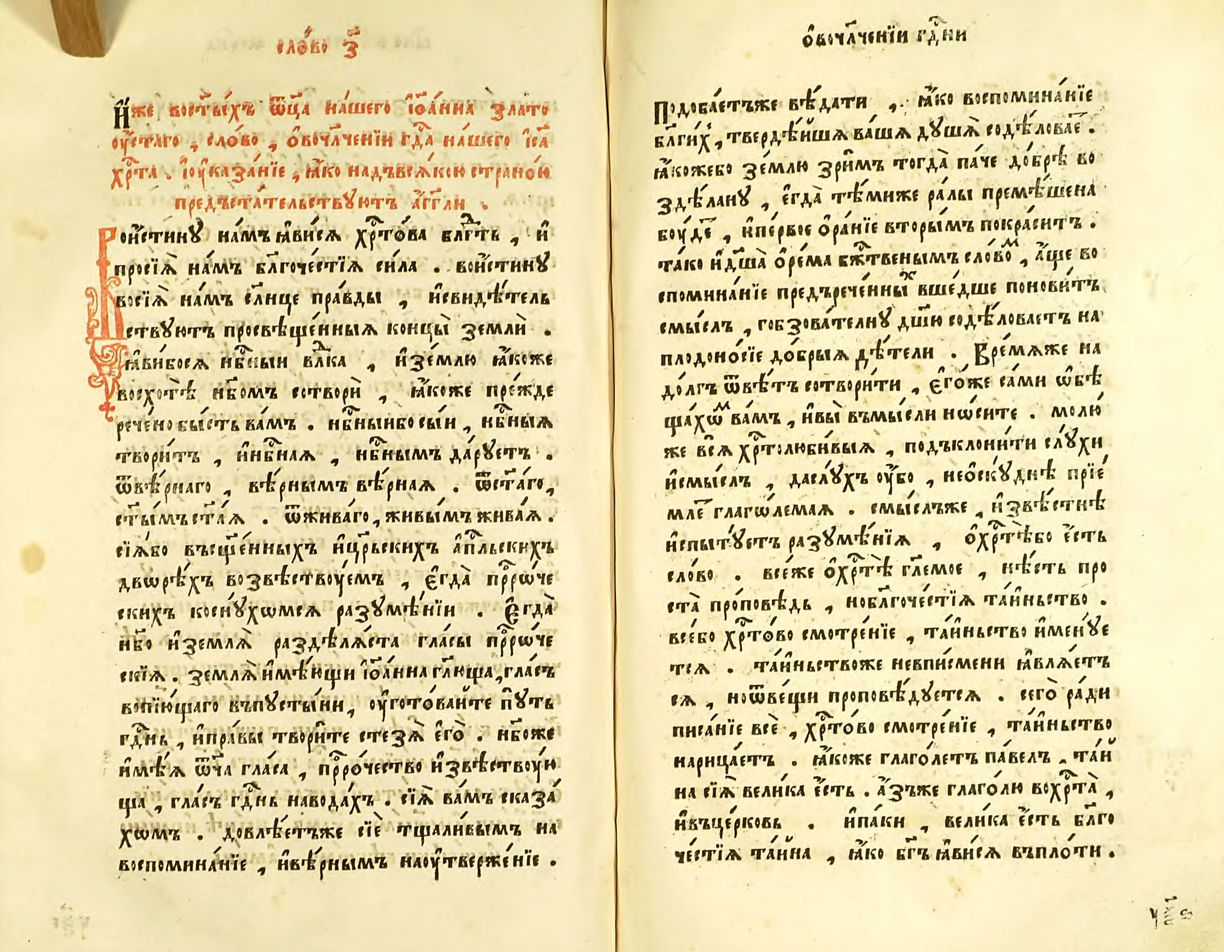 сло́во з҃
И҆́же восты́хъ ѿц҃а на́шего і҆ѡа́нна злато
ꙋ҆́стаго , сло́во , ѡ҆вочл҃че́нїи гд҇а на́шего і҆са
хрⷭ҇та̀ . і҆ꙋ҆каза́нїе , ꙗ҆́ко надъвсѧ́кою страно́ю
предъста́тельствꙋютъ а҆́гг҃ли .
Вои҆́стинꙋ на́мъ ꙗ҆ви́сѧ хрⷭ҇то́ва блгⷣть , и҆
просїѧ̀ на́мъ бл҃гоче́стїѧ си́ла . вои́стинꙋ
восїѧ̀ на́мъ сл҃нце пра́вды , и҆свидѣ́тель
ствꙋютъ просвѣще́нныѧ концы̀ землѝ .
ꙗ҆ви́босѧ нб҇ныи влⷣка , и҆зе́млю ꙗ҆́коже
восхотѣ̀ нб҃омъ сотворѝ , ꙗ҆́коже пре́жде
рече́но бы́сть ва́мъ . нб҇ныибосы́и , нб҇ныѧ
твори́тъ , и҆нб҇наѧ , нб҇нымъ да́рꙋетъ .
ѿвѣ́рнаго , вѣ́рнымъ вѣ́рнаѧ . ѿст҃а́го ,
ст҃ы́мъ ст҃а́ѧ . ѿжива́го , живы́мъ жива́ѧ .
сїѧ́бо въсщ҃е́нныхъ и҆цр҇ьскихъ а҆пⷭ҇льскихъ
двѡрѣ́хъ возвѣствꙋ́емъ , є҆гда̀ прⷪ҇ро́че
скихъ коснꙋ́хѡмсѧ разꙋмѣ́нїи . Є҆гда̀
нб҃о и҆землѧ̀ раздѣлѧ́ста гла́сы прⷪ҇ро́че
скїѧ . землѧ̀ и҆мѣ́ющи і҆ѡа́нна гл҃юща , гла́съ
вопїю́щаго въпꙋсты́ни , ᲂу҆гото́ваите пꙋ́ть
гдⷭ҇нь , и҆пра́вы твори́те стезѧ̀ є҆гѡ̀ . нб҃оже
и҆мѣ́ѧ ѿч҃а гла́са , прⷪ҇ро́чество и҆звѣствꙋ́ю
ща , гла́съ гдⷭ҇нь наводѧ́хъ . сїѧ̀ ва́мъ сказа́
хѡмъ . довлѣ́етъже сїѐ тщали́вымъ на
воспомина́нїе , и҆вѣ́рнымъ наᲂу҆твержѐнїе .
ѡ҆вочл҃че́нїи гдⷭ҇ни
Подоба́етъже вѣ́дати , ꙗ҆́ко воспомина́нїе
бл҃ги́хъ , тверди́йшѧ ва́шѧ дꙋ́шѧ содѣ́ловае .
ꙗ҆́кожебо зе́млю зри́мъ тогда̀ па́че до́брѣ во
здѣ́ланꙋ , є҆гда̀ тѣ́миже ра́лы премѣ́шена
бꙋ́де , и҆пе́рвое ѡ҆ра́нїе вторы́мъ покраси́тъ .
та́ко и҆дш҃а̀ ѡ҆ре́ма бжⷭ҇твенымъ сло́вом , а҆́ще во
спомина́нїе предърече́нных вше́дше понови́тъ
смы́слъ , гобзова́телнꙋ дш҃ю содѣ́ловаетъ на
плодоно́сїе до́брыѧ дѣ́тели . Вре́мѧже на
до́лгъ ѿвѣ́тъ сотвори́ти , є҆го́же са́ми ѡ҆бѣ
ща́хѡм ва́мъ , и҆вы̀ въмы́сли но́сите . молю́
же всѧ̀ хрⷭ҇толюби́выѧ , подъклони́ти слꙋ́хи
и҆смы́слъ , даслꙋ́хъ ᲂу҆́бо , нео҆скꙋ́днѣ прїе́
мле глаго́лемаѧ . смы́слъже , и҆звѣ́стнѣ
и҆спытꙋ́етъ разꙋмѣ́нїѧ , ѡ҆хрⷭ҇тѣ́бо є҆́сть
сло́во . все́же ѡ҆хрⷭ҇тѣ̀ гл҃емое , нѣ́сть про
ста̀ про́повѣдь , ноблагоче́стїѧ та́иньство .
все́бо хрⷭ҇то́во смотре́нїе , та́иньство и҆менꙋ́е
тсѧ . та́иньствоже невписмени ꙗ҆влѧ́етъ
сѧ , ноѿве́щи проповѣ́дꙋетсѧ . сегѡ̀ ра́ди
писа́нїе всѐ , хрⷭ҇то́во смотре́нїе , та́иньство
нарица́етъ . ꙗ҆́коже глаго́летъ па́велъ . та́и
на сїѧ̀ вели́ка є҆́сть . а҆́зъже глаго́лю вохрⷭ҇та̀ ,
и҆въце́рковь . и҆па́ки , вели́ка є҆́сть бл҃го
че́стїѧ та́ина , ꙗ҆́ко бг҃ъ ꙗ҆ви́сѧ въпло́ти .